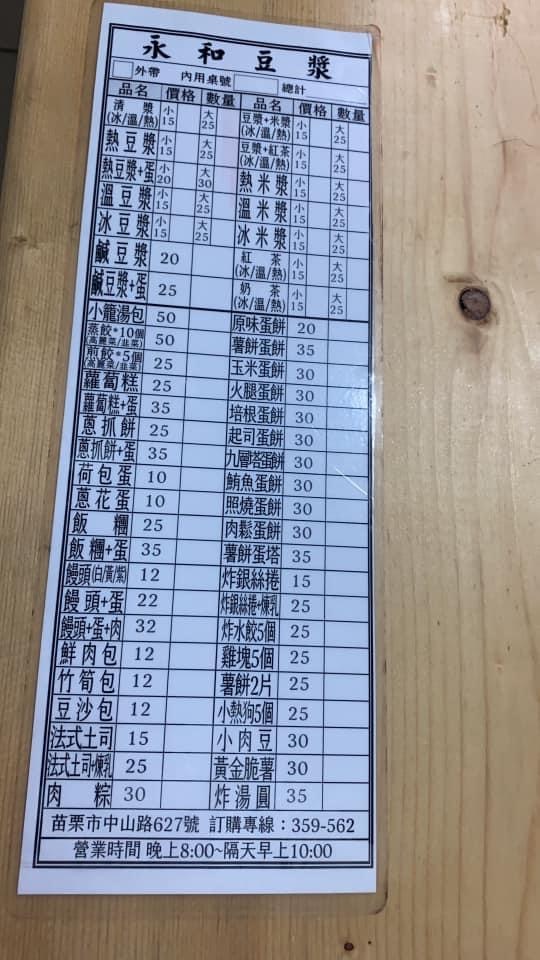 永和豆漿
外帶 內用桌號 總計
品名 價格 數量 品名 價格 數量
清漿(冰/溫/熱) 小15 大25 豆漿+米漿(冰/溫/熱) 小15 大25
熱豆漿 小15 大25 豆漿+紅茶(冰/溫/熱) 小15 大25
熱豆漿+蛋 小20 大30 熱米漿 小15 大25
溫豆漿 小15 大25 溫米漿 小15 大25
冰豆漿 小15 大25 冰米漿 小15 大25
鹹豆漿 20 紅茶(冰/溫/熱) 小15 大25
鹹豆漿+蛋 25 奶茶(冰/溫/熱) 小15 大25
小龍湯包 50 原味蛋餅 20
蒸餃*10個(高麗菜/韭菜) 50 薯餅蛋餅 35
煎餃*5個(高麗菜/韭菜) 25 玉米蛋餅 30
蘿蔔糕 25 火腿蛋餅 30
蘿蔔糕+蛋 35 培根蛋餅 30
蔥抓餅 25 起司蛋餅 30
蔥抓餅+蛋 35 九層塔蛋餅 30
荷包蛋 10 鮪魚蛋餅 30
蔥花蛋 10 照燒蛋餅 30
飯糰 25 肉鬆蛋餅 30
飯糰+蛋 35 薯餅蛋塔 35
饅頭(白/黃/紫) 12 炸銀絲捲 15
饅頭+蛋 22 炸銀絲捲+煉乳 25
饅頭+蛋+肉 32 炸水餃5個 25
鮮肉包 12 雞塊5個 25
竹筍包 12 薯餅2片 25
豆沙包 12 小熱狗5個 25
法式土司 15 小肉豆 30
法式土司+煉乳 25 黃金脆薯 30
肉粽 30 炸湯圓 35
苗栗市中山路627號 訂購專線：359-562
營業時間 晚上8:00~隔天早上10:00